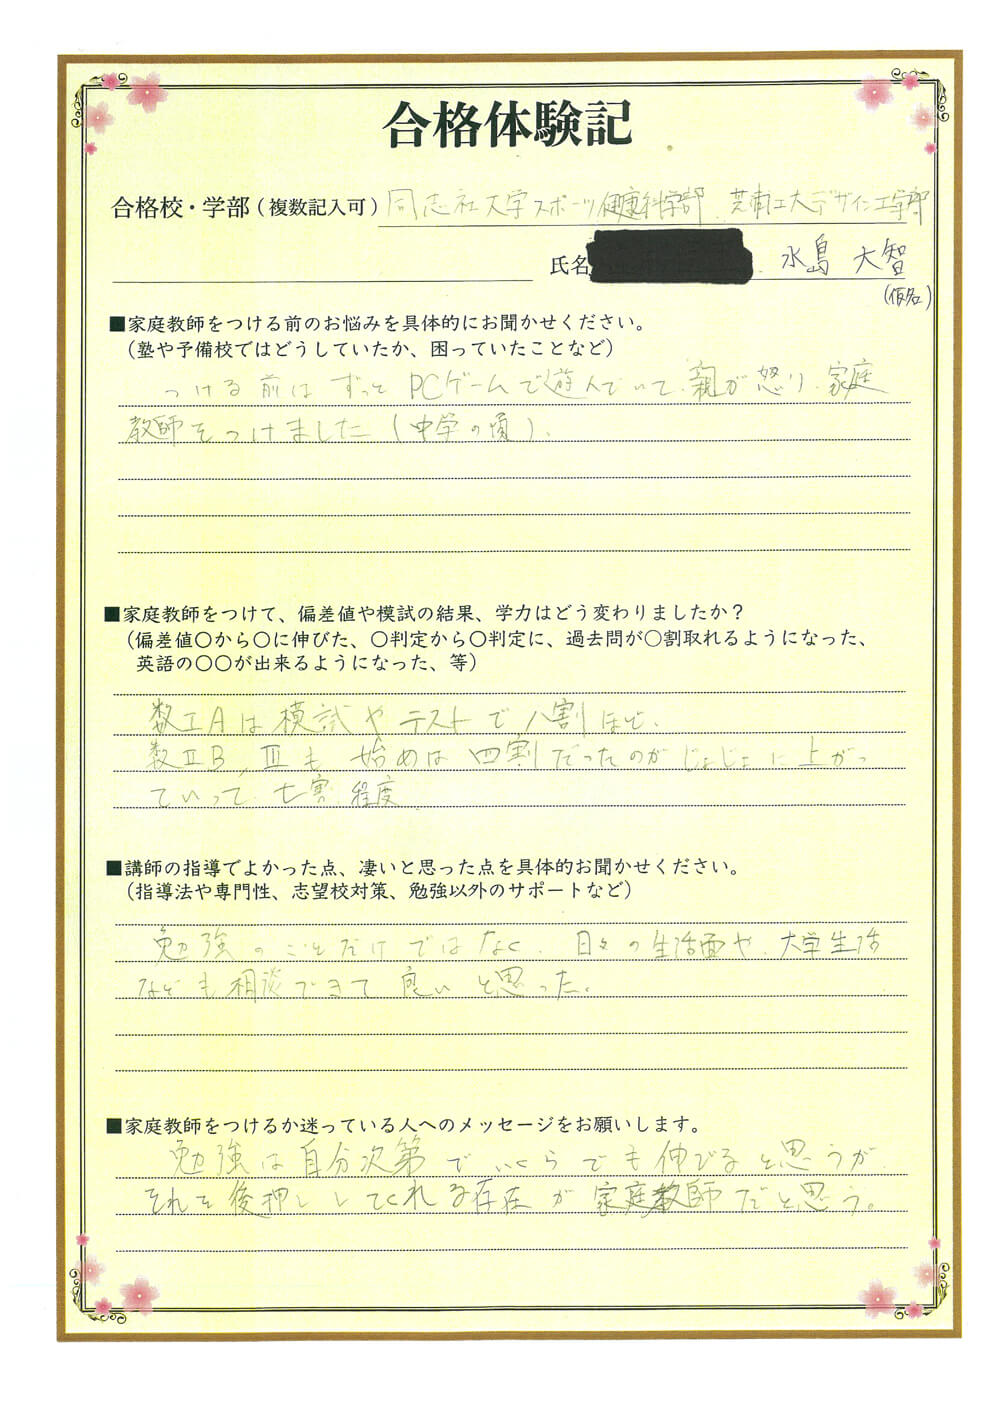 合格体験記
合格校・学部（複数記入可） 同志社大学スポーツ健康科学部 芝浦工大デザイン工学部
氏名 水島 大智
（仮名）
■家庭教師をつける前のお悩みを具体的にお聞かせください。
（塾や予備校ではどうしていたか、困っていたことなど）
つける前はずっとPCゲームで遊んでいて、親が怒り、家庭
教師をつけました（中学の頃）、
■家庭教師をつけて、偏差値や模試の結果、学力はどう変わりましたか？
（偏差値〇から〇に伸びた、〇判定から〇判定に、過去問が〇割取れるようになった、
英語の〇〇が出来るようになった、等）
数ⅠAは模試やテストで八割ほど、
数ⅡB，Ⅲも 始めは四割だったのがじょじょに上がっ
ていって、七割程度
■講師の指導でよかった点、凄いと思った点を具体的お聞かせください。
（指導法や専門性、志望校対策、勉強以外のサポートなど）
勉強のことだけではなく、日々の生活面や、大学生活
なども相談できて良いと思った。
■家庭教師をつけるか迷っている人へのメッセージをお願いします。
勉強は自分次第でいくらでも伸びると思うが、
それを後押ししてくれる存在が家庭教師だと思う。